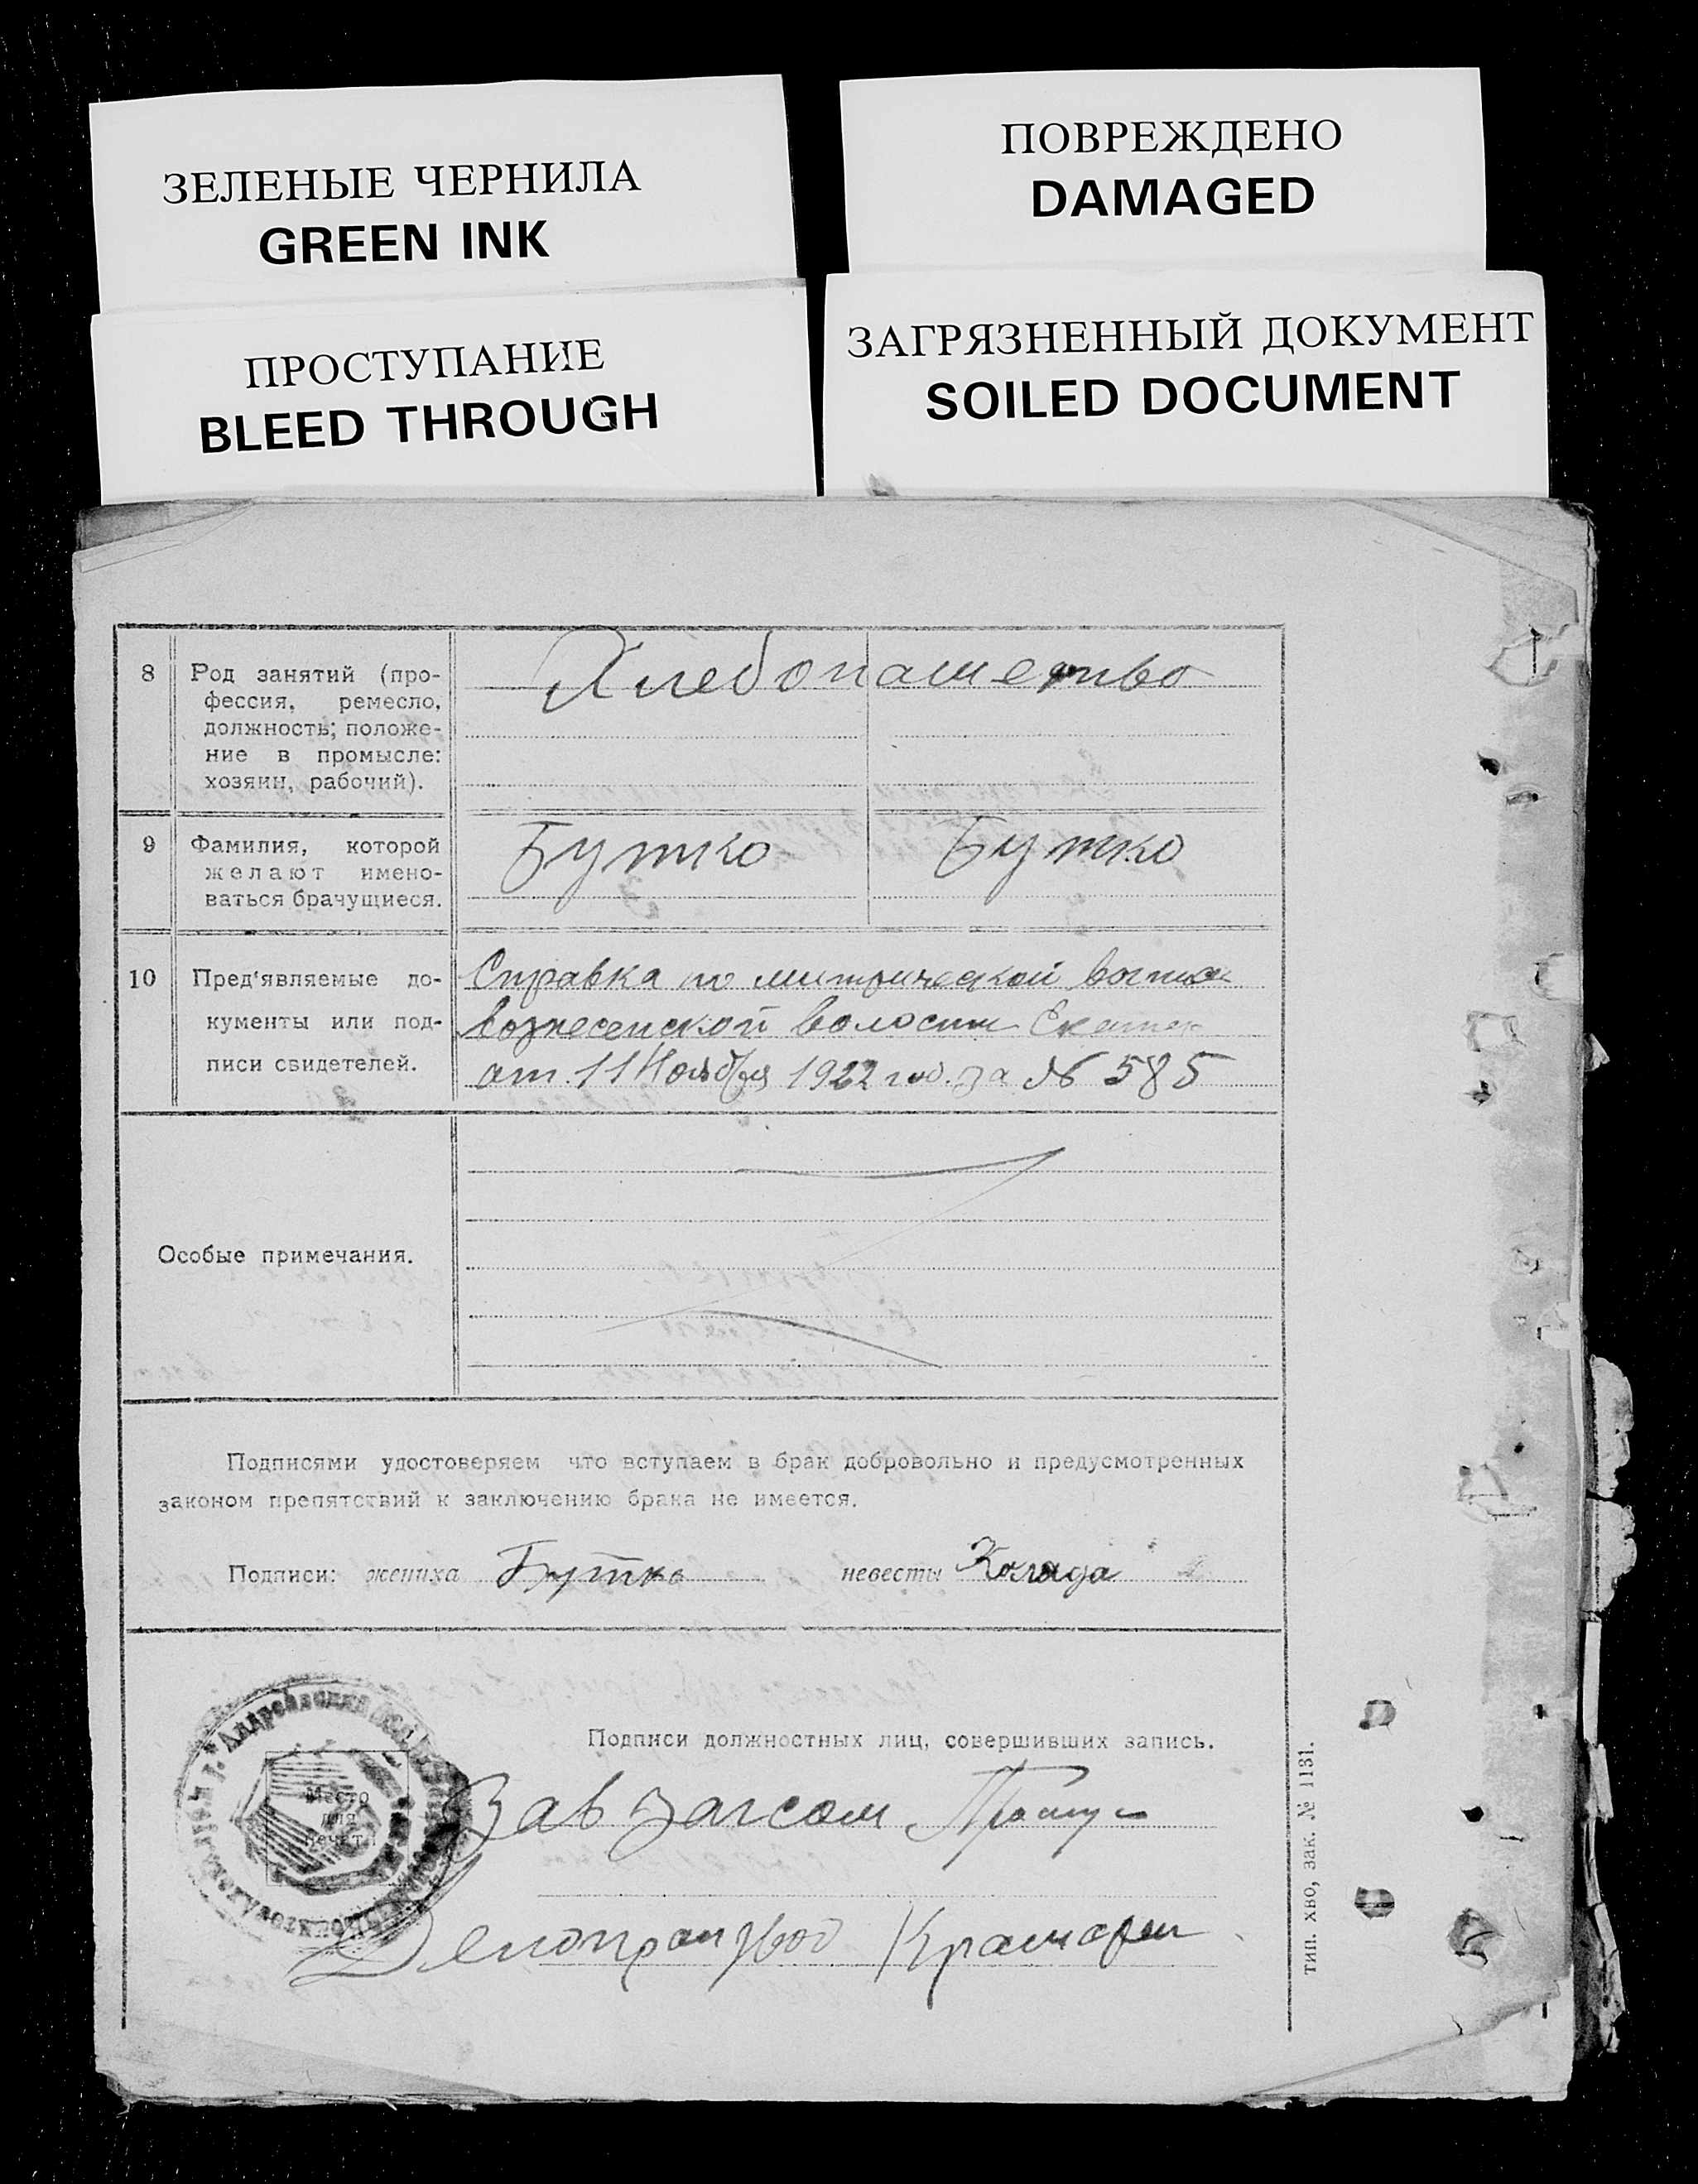 ЗЕЛЕНЫЕ ЧЕРНИЛА
GREEN INK
ПОВРЕЖДЕНО
DAMAGED
ПРОСТУПАНИЕ
BLEED THROUGH
ЗАГРЯЗНЕННЫЙ ДОКУМЕНТ
SOILED DOCUMENT
8 Род занятий (про-
фессия, ремесло,
должность; положе-
ние в промысле:
хозяин, рабочий).
Хлебопашество
9 Фамилия, которой
желают имено-
ваться брачущиеся.
Бутко Бутко
10 Пред'являемые до-
кументы или под-
писи свидетелей.
Справка по митрической
вознесенской волости Екатер
от 11 Ноября 1922 год. за № 585
Особые примечания.
Подписями удостоверяем что вступаем в брак добровольно и предусмотренных
законом препятствий к заключению брака не имеется.
Подписи: жениха Бутко невесты Коляда
Подписи должностных лиц, совершивших запись.
Место
для
печати
Зав Загсом
Делопроизвод
тип. ХВО, зак. № 1131.